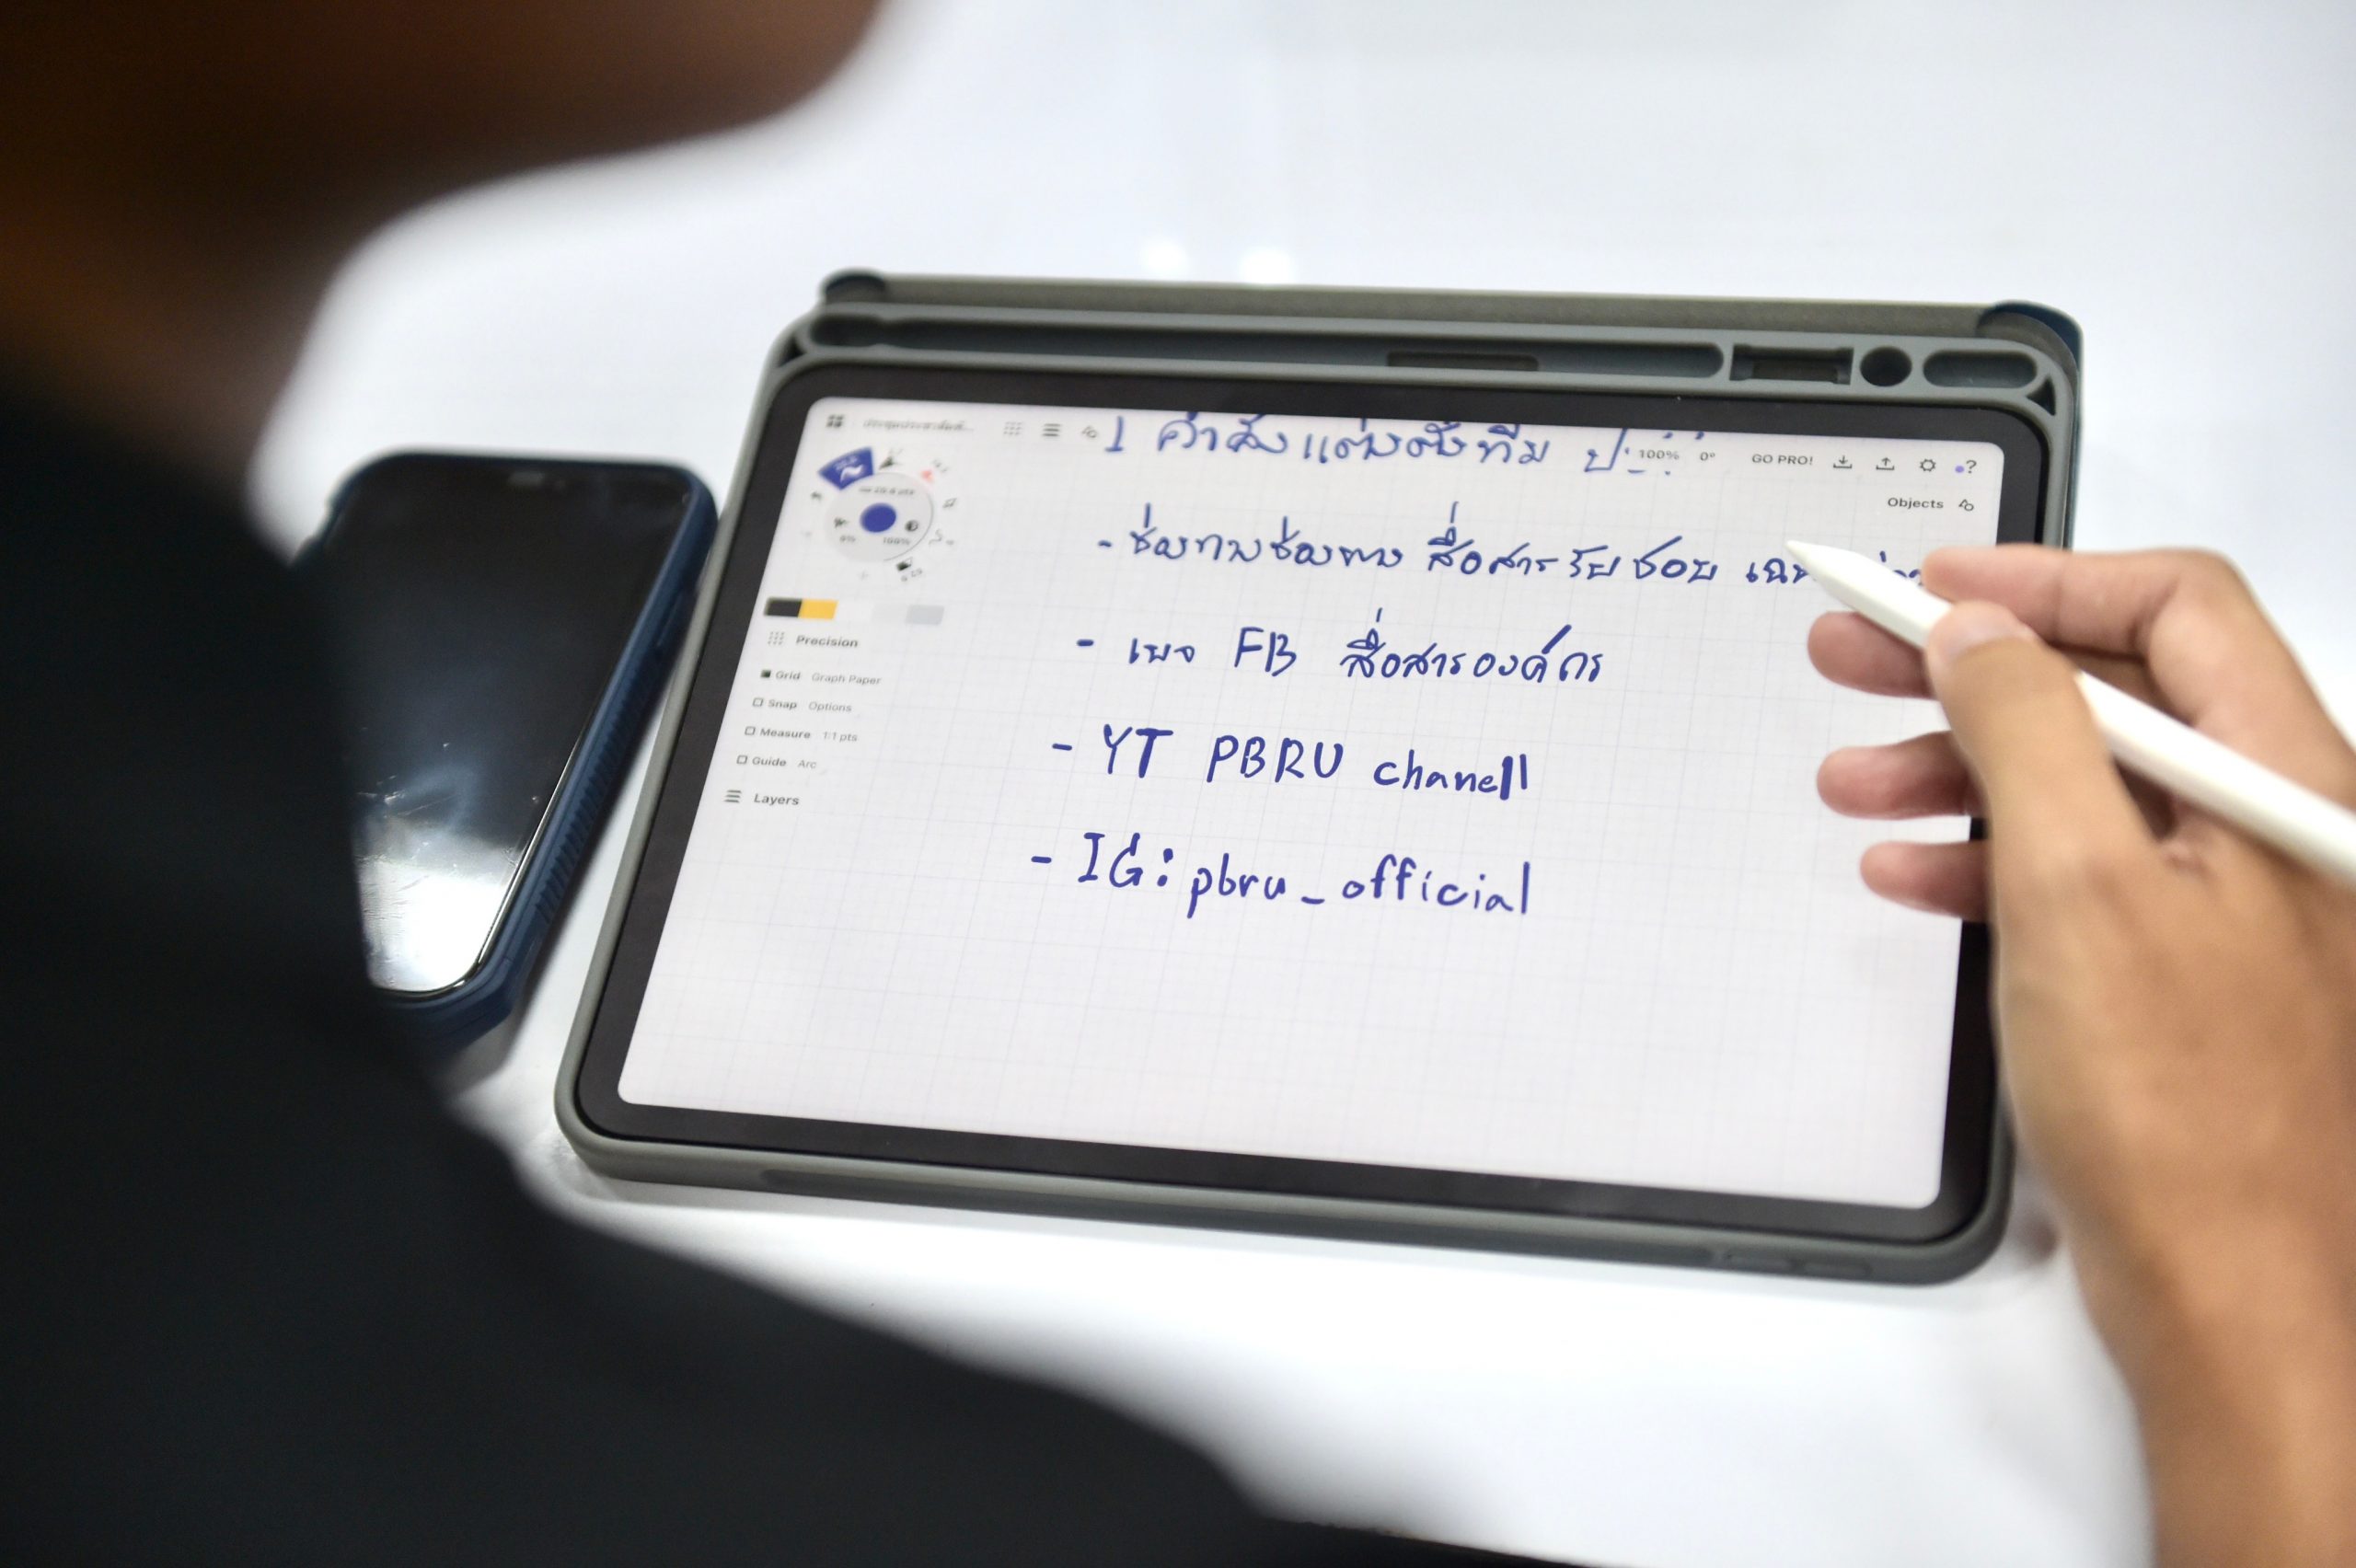 1 คำสั่งแต่งตั้งทีม
100% 0° GO PRO! ?
Objects
- ช่องทางช่องทาง สื่อสาร รับชอบ
- เพจ FB สื่อสารองค์กร
- YT PBRU chanell
- IG: pbru_official
100%
Precision
Grid Graph Paper
Snap Options
Measure 1:1 pts
Guide Arc
Layers